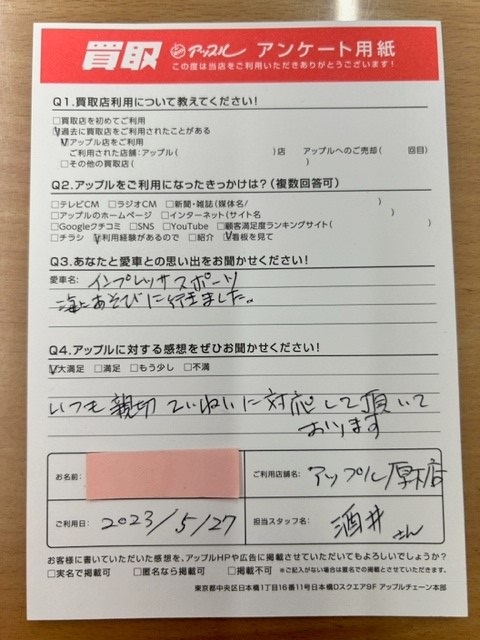 買取 アップル アンケート用紙
この度は当店をご利用いただきありがとうございます!
Q1.買取店利用について教えてください!
□買取店を初めてご利用
☑過去に買取店をご利用されたことがある
☑アップル店をご利用
ご利用された店舗:アップル( )店 アップルへのご売却( 回目)
□その他の買取店( )
Q2.アップルをご利用になったきっかけは?(複数回答可)
□テレビCM □ラジオCM □新聞・雑誌(媒体名/ )
□アップルのホームページ □インターネット(サイト名 )
□Googleクチコミ □SNS □YouTube □顧客満足度ランキングサイト( )
□チラシ ☑利用経験があるので □紹介 ☑看板を見て
Q3.あなたと愛車との思い出をお聞かせください!
愛車名: インプレッサスポーツ
海にあそびに行きました。
Q4.アップルに対する感想をぜひお聞かせください!
☑大満足 □満足 □もう少し □不満
いつも親切ていねいに対応して頂いて
おります
お名前:
ご利用店舗名: アップル厚木店
ご利用日: 2023/5/27
担当スタッフ名: 酒井さん
お客様に書いていただいた感想を、アップルHPや広告に掲載させていただいてもよろしいでしょうか?
□実名で掲載可 □匿名なら掲載可 □掲載不可 ※ご記入がない場合は匿名での掲載とさせていただきます。
東京都中央区日本橋1丁目16番11号日本橋Dスクエア9F アップルチェーン本部